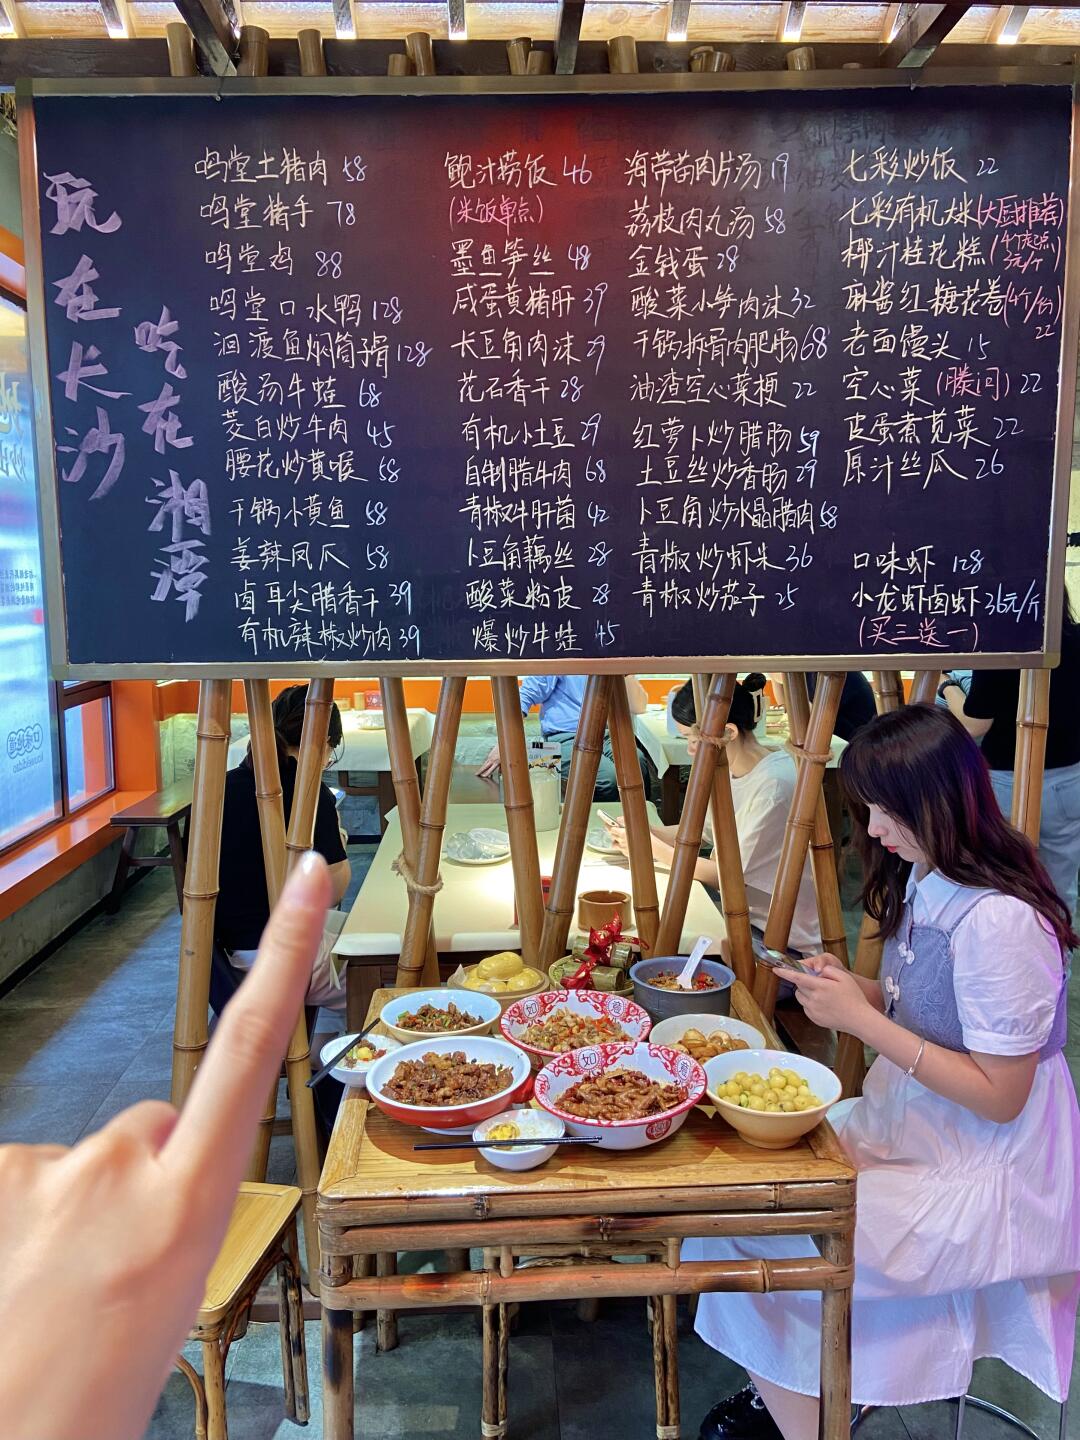 玩在长沙
吃在湘潭
鸣堂土猪肉 58
鸣堂猪手 78
鸣堂鸡 88
鸣堂口水鸭 128
洄渡鱼焖筒子骨 128
酸汤牛蛙 68
茭白炒牛肉 45
腰花炒黄喉 58
干锅小黄鱼 58
姜辣凤爪 58
卤耳尖腊香干 39
有机辣椒炒肉 39
鲍汁捞饭 46
(米饭单点)
墨鱼笋丝 48
咸蛋黄猪肝 39
长豆角肉沫 29
花石香干 28
有机小土豆 29
自制腊牛肉 68
青椒牛肝菌 42
卜豆角藕丝 28
酸菜粉皮 28
爆炒牛蛙 45
海带苗肉片汤 19
荔枝肉丸汤 58
金钱蛋 28
酸菜小笋肉沫 32
干锅拆骨肉肥肠 68
油渣空心菜梗 22
红萝卜炒腊肠 59
土豆丝炒香肠 29
卜豆角炒水晶腊肉 58
青椒炒虾米 36
青椒炒茄子 25
七彩炒饭 22
七彩有机大米(大厨推荐)
椰汁桂花糕(4个起点 3元/个)
麻酱红糖花卷(4个/份) 22
老面馒头 15
空心菜(幐问) 22
皮蛋煮苋菜 22
原汁丝瓜 26
口味虾 128
小龙虾卤虾 36元/斤
(买三送一)
如意
如意